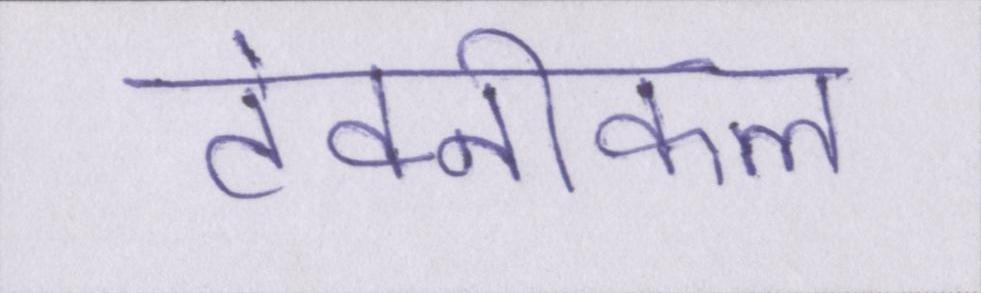 टंक्नीकल